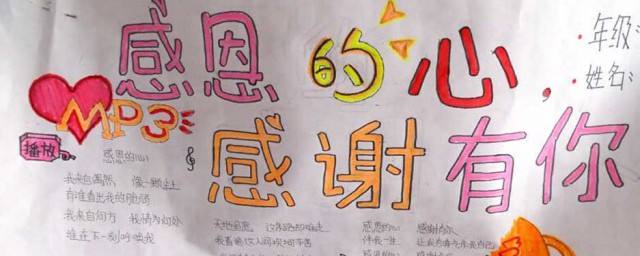 感恩的心,
感谢有你
·年级:
·姓名:
MP3
播放
感恩的心
我来自偶然, 像一颗尘土
有谁看出我的脆弱
我来自何方 我情归何处
谁在下一刻呼唤我
天地虽宽, 这条路却难走
我看遍这人间坎坷辛苦
感恩的心 感谢有你
伴我一生 让我有勇气作我自己
感恩的心